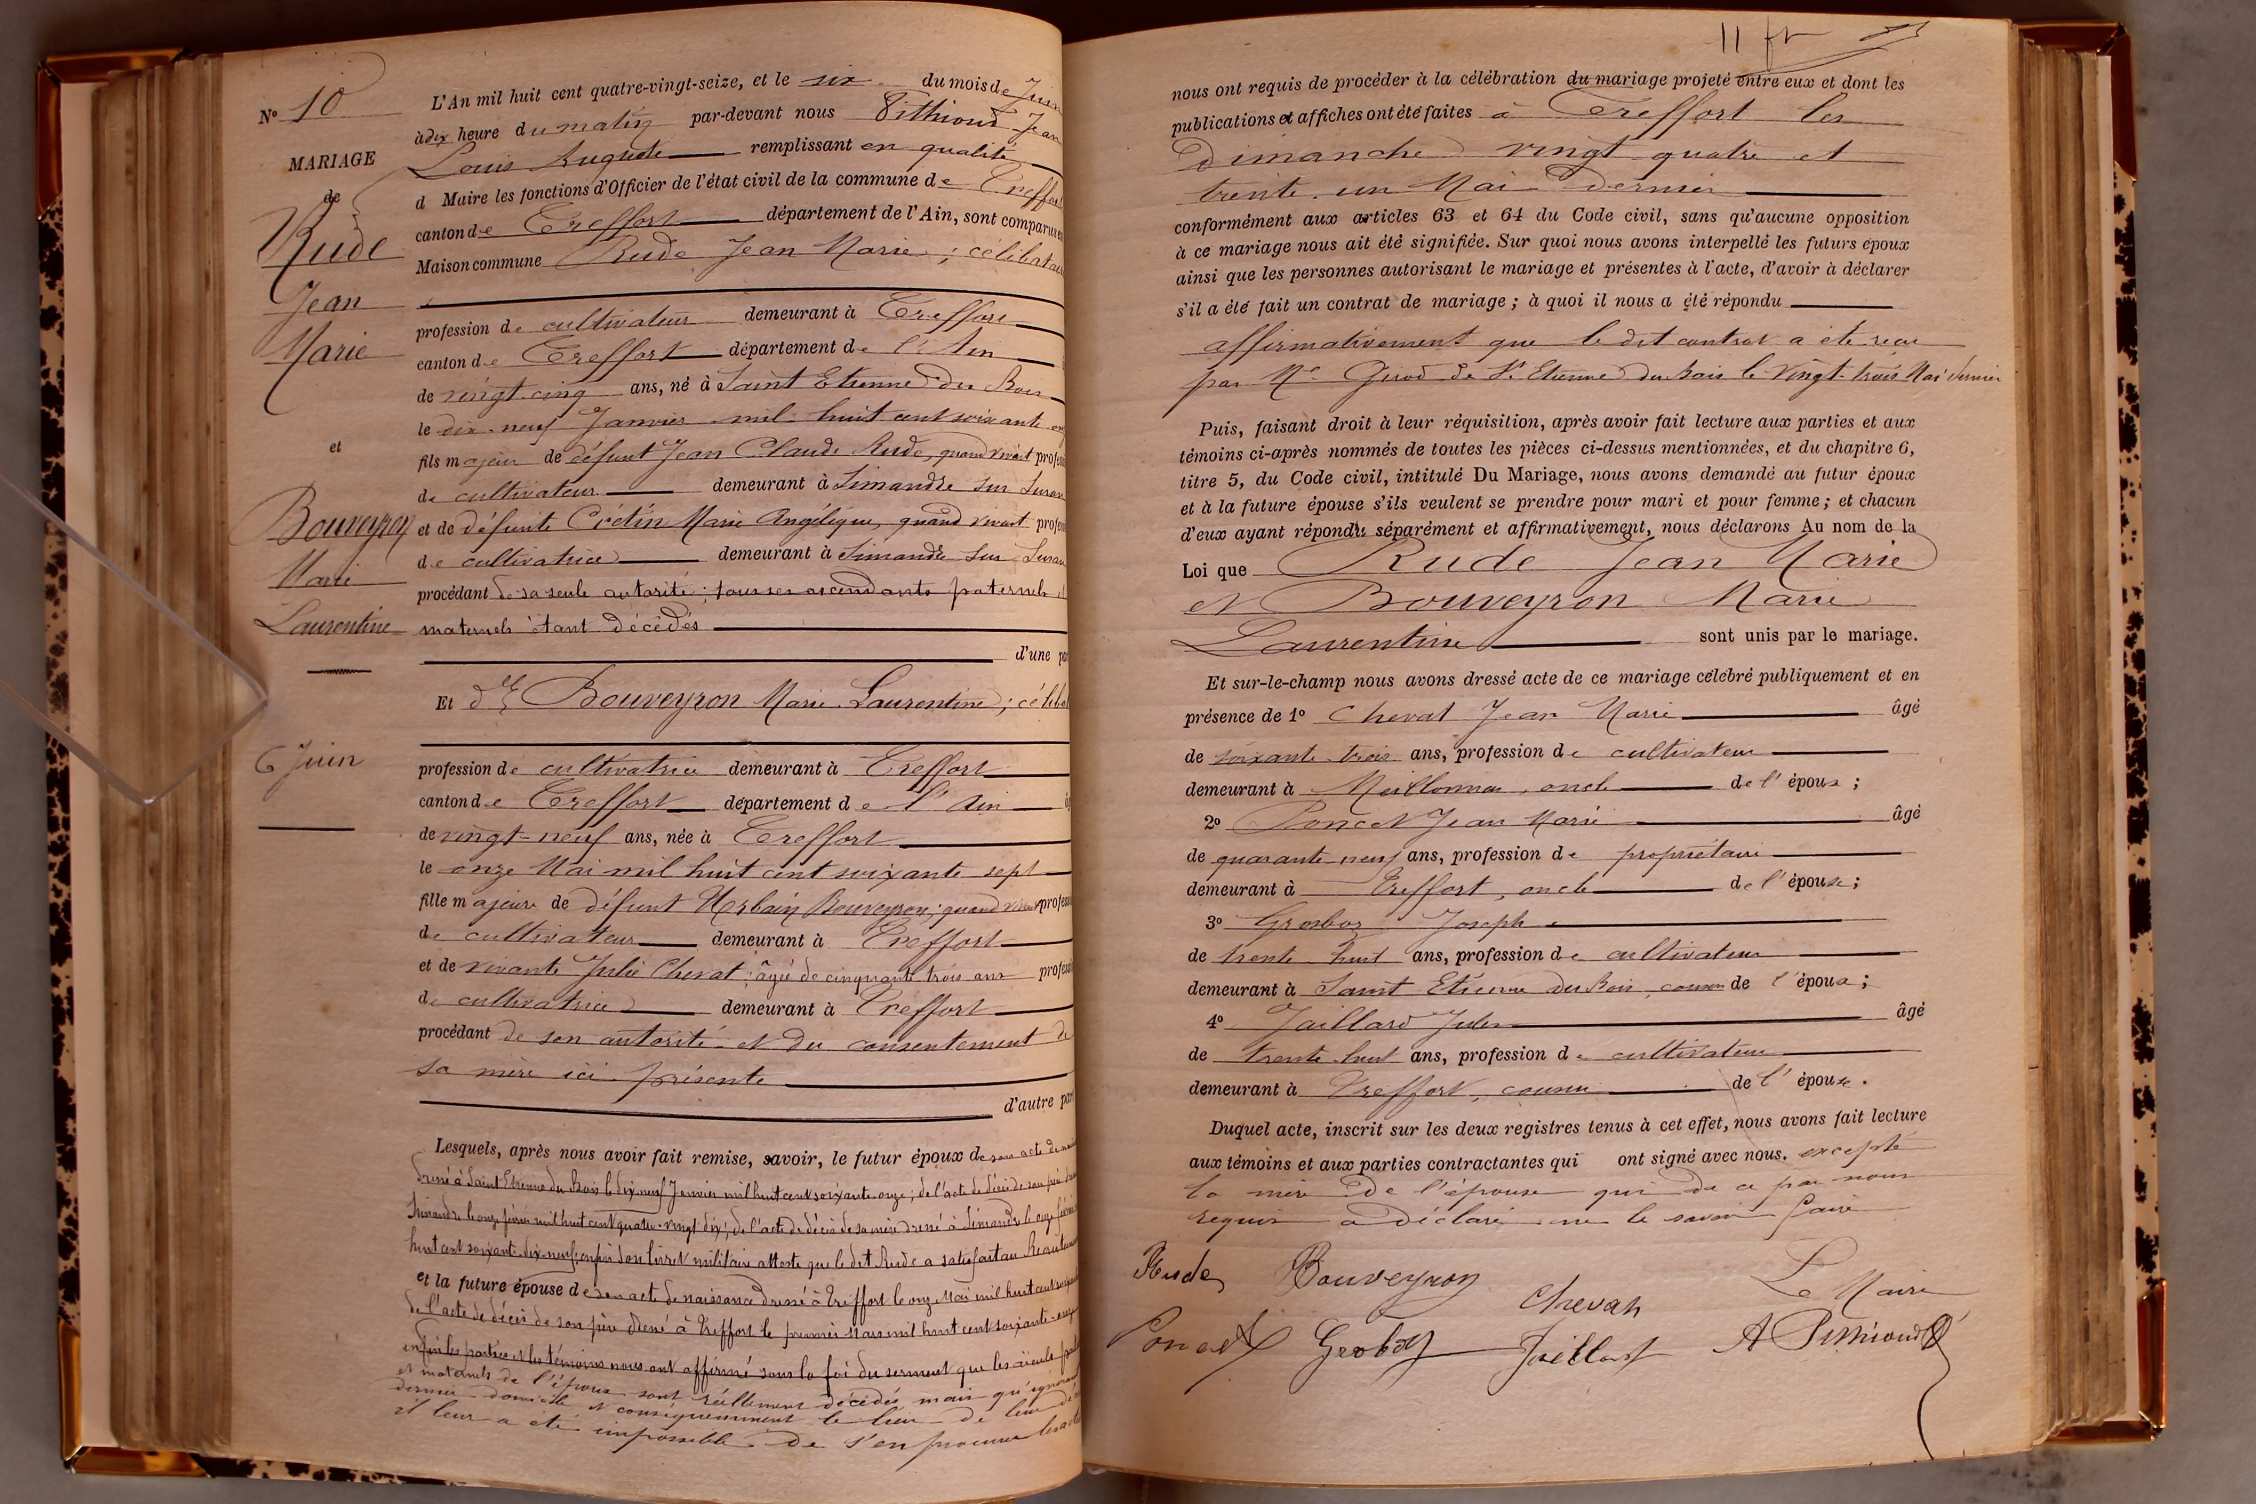 N° 10
MARIAGE
de
Rude
Jean
Marie
et
Bouveyron
Marie
Laurentine
6 Juin
L'An mil huit cent quatre-vingt-seize, et le six du mois de Juin
à dix heure du matin par-devant nous Pithioud Jean
Louis Auguste remplissant en qualité
d Maire les fonctions d'Officier de l'état civil de la commune de Treffort
canton de Treffort département de l'Ain, sont comparus en
Maison commune Rude Jean Marie ; célibataire
profession de cultivateur demeurant à Treffort
canton de Treffort département de l'Ain
de vingt-cinq ans, né à Saint Etienne du Bois
le dix-neuf Janvier mil huit cent soixante onze
fils majeur de défunt Jean Claude Rude, quand vivait profession
de cultivateur demeurant à Simandre sur Suran
et de défunte Crétin Marie Angélique, quand vivait profession
de cultivatrice demeurant à Simandre sur Suran
procédant de sa seule autorité ; tous ses ascendants paternels et
maternels étant décédés
d'une part
Et dlle Bouveyron Marie Laurentine ; célibat
profession de cultivatrice demeurant à Treffort
canton de Treffort département de l'Ain
de vingt-neuf ans, née à Treffort
le onze Mai mil huit cent soixante sept
fille majeure de défunt Urbain Bouveyron ; quand vivait profession
de cultivateur demeurant à Treffort
et de vivante Julie Chevat ; âgée de cinquante trois ans profession
de cultivatrice demeurant à Treffort
procédant de son autorité et du consentement de
sa mère ici présente
d'autre part
Lesquels, après nous avoir fait remise, savoir, le futur époux de son acte de
dressé à Saint Etienne du Bois le dix-neuf Janvier mil huit cent soixante-onze ; de l'acte de décès de son père
Simandre le onze février mil huit cent quatre-vingt dix ; de l'acte de décès de sa mère dressé à Simandre le onze
huit cent soixante-dix-neuf, enfin son livret militaire atteste que le dit Rude a satisfait au Recrutement
et la future épouse de son acte de naissance dressé à Treffort le onze Mai mil huit cent soixante
de l'acte de décès de son père dressé à Treffort le premier Mars mil huit cent soixante-onze
enfin les parties et les témoins nous ont affirmé sous la foi du serment que les aïeuls
et maternels de l'époux sont réellement décédés mais qu'ignorant
dernier domicile et conséquemment le lieu de leur
il leur a été impossible de s'en procurer les actes
11 fr
nous ont requis de procéder à la célébration du mariage projeté entre eux et dont les
publications et affiches ont été faites à Treffort les
Dimanche vingt quatre et
trente-un Mai dernier
conformément aux articles 63 et 64 du Code civil, sans qu'aucune opposition
à ce mariage nous ait été signifiée. Sur quoi nous avons interpellé les futurs époux
ainsi que les personnes autorisant le mariage et présentes à l'acte, d'avoir à déclarer
s'il a été fait un contrat de mariage ; à quoi il nous a été répondu
affirmativement que le dit contrat a été reçu
par Me Girod de St Etienne du Bois le vingt-trois Mai dernier
Puis, faisant droit à leur réquisition, après avoir fait lecture aux parties et aux
témoins ci-après nommés de toutes les pièces ci-dessus mentionnées, et du chapitre 6,
titre 5, du Code civil, intitulé Du Mariage, nous avons demandé au futur époux
et à la future épouse s'ils veulent se prendre pour mari et pour femme ; et chacun
d'eux ayant répondu séparément et affirmativement, nous déclarons Au nom de la
Loi que Rude Jean Marie
et Bouveyron Marie
Laurentine sont unis par le mariage.
Et sur-le-champ nous avons dressé acte de ce mariage célébré publiquement et en
présence de 1° Chevat Jean Marie âgé
de soixante-trois ans, profession de cultivateur
demeurant à Meillonnas, oncle de l'épouse ;
2° Poncet Jean Marie âgé
de quarante-neuf ans, profession de propriétaire
demeurant à Treffort, oncle de l'épouse ;
3° Grosboz Joseph
de trente-huit ans, profession de cultivateur
demeurant à Saint Etienne du Bois, cousin de l'époux ;
4° Jaillard Jules âgé
de trente-huit ans, profession de cultivateur
demeurant à Treffort, cousin de l'épouse.
Duquel acte, inscrit sur les deux registres tenus à cet effet, nous avons fait lecture
aux témoins et aux parties contractantes qui ont signé avec nous. excepté
la mère de l'épouse qui de ce par nous
requis a déclaré ne le savoir faire
Rude Bouveyron Chevat Le Maire
Poncet Grosboz Jaillard A Pithioud